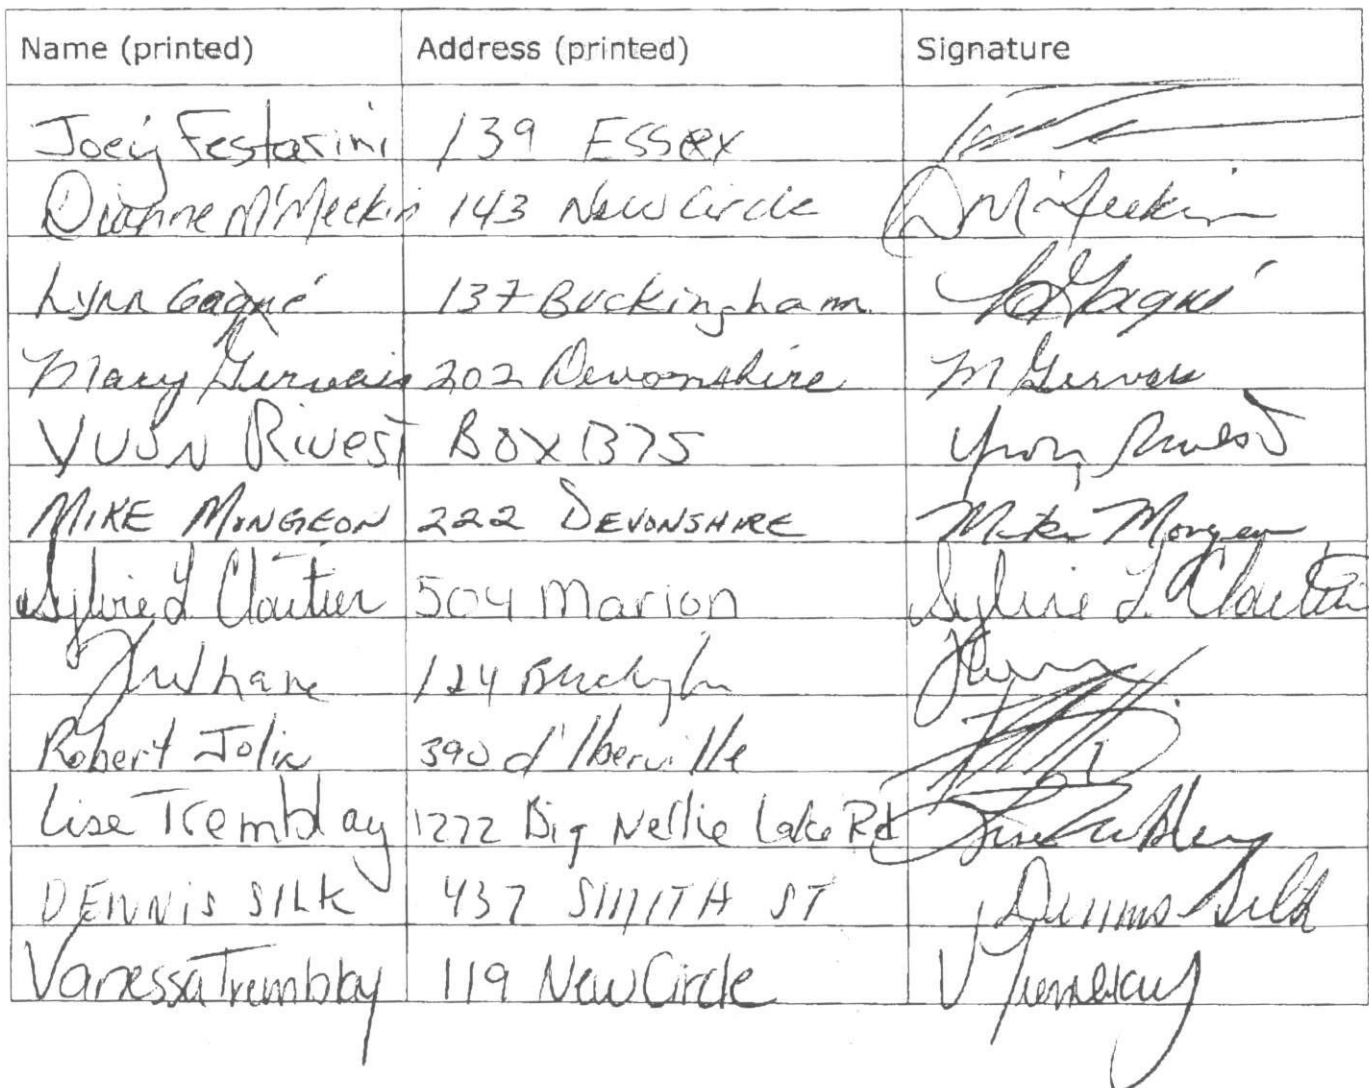 Name (printed) Address (printed) Signature
Joey Festarini 139 Essex
Dianne M'Meekin 143 New Circle D M'Meekin
Lynn Gagné 137 Buckingham L Gagné
Mary Gervais 202 Devonshire M Gervais
YVON Rivest BOX 1375 Yvon Rivest
MIKE MONGEON 222 DEVONSHIRE Mike Mongeon
Sylvie L Cloutier 504 Marion Sylvie L Cloutier
124
Robert Jolin 390 d'Iberville
Lise Tremblay 1272 Big Nellie Lake Rd Lise Tremblay
DENNIS SILK 437 SMITH ST Dennis Silk
Vanessa Tremblay 119 New Circle V Tremblay